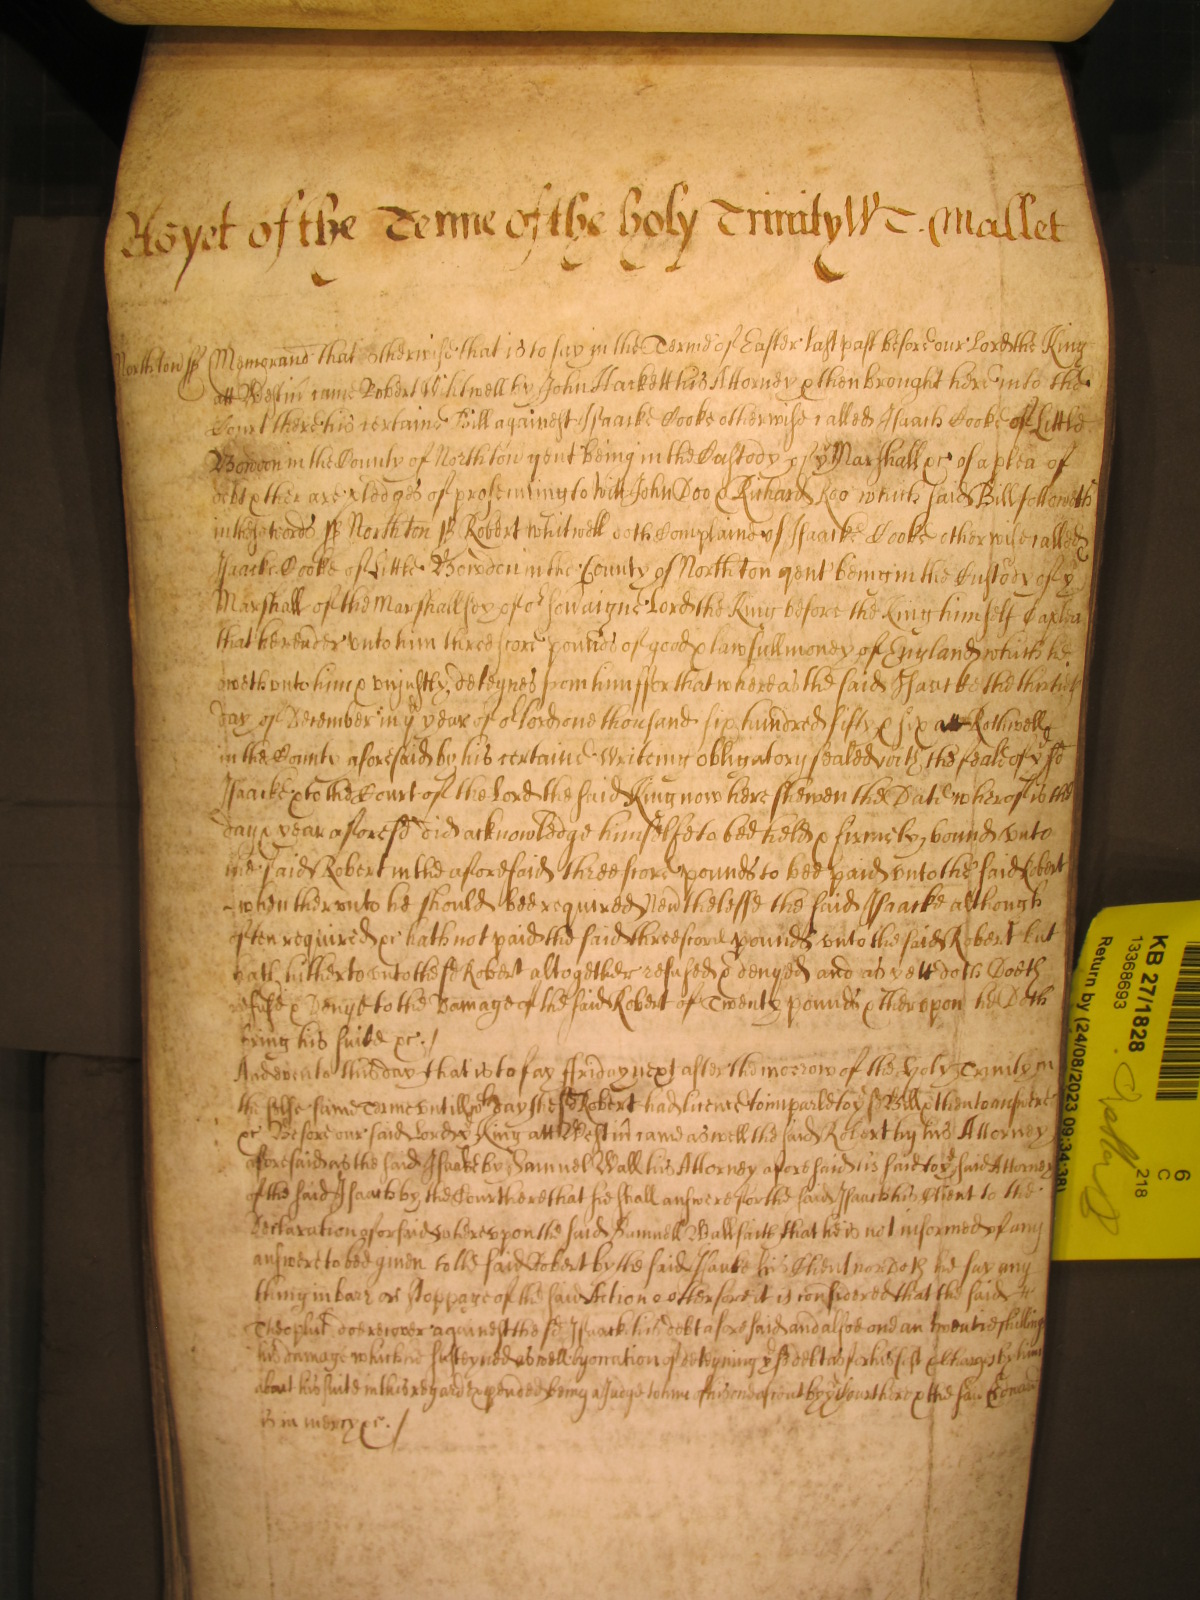 As yet of the Terme of the holy Trinity Wt. Mallet
North'ton ss Memorand that otherwise that is to say in the Terme of Easter last past before our Lord the King
att Westm came Robert Whitwell by John Hackett his Attorney & then brought here into the
Court there his certaine Bill against Isaacke Cooke otherwise called Isaach Cooke of Little
Bowdon in the County of North'ton gent being in the Custody of ye Marshall &c of a plea of
debt & ther are pledges of prosecuting to witt John Doo & Richard Roo which said Bill followeth
in these words ss North'ton ss Robert Whitwell doth Complaine of Isaacke Cooke otherwise called
Isaacke Cooke of Little Bowden in the County of North'ton gent being in the Custody of ye
Marshall of the Marshallsey of or Soveraigne Lord the King before the King himself of a plea
that he render unto him threescore pounds of good & lawfull money of England which he
oweth unto him & unjustly deteynes from him ffor that whereas the said Isaacke the thirtieth
day of December in ye year of or lord one thousand six hundred fifty & six att Rothwell
in the County aforesaid by his certaine Writeing obligatory sealed with the seale of ye sd
Isaacke & to the Court of the Lord the said King now here shewen the Date wherof is the
day & year aforesd did acknowledge himselfe to bee held & firmely bound unto
the said Robert in the aforesaid threescore pounds to bee paid unto the said Robert
when therunto he should bee required Neverthelesse the said Isaacke although
often required &c hath not paid the said threescore pounds unto the said Robert but
hath hitherto unto the sd Robert altogether refused & denyed and as yett doth Doeth
refuse & Denye to the Damage of the said Robert of Twenty pounds & therupon he Doth
bring his suite &c./
And even to this day that is to say ffriday next after the morrow of the Holy Trinity in
the selfe same Terme untill wch day the sd Robert had licence to imparle to ye sd Bill & then to answere
&c Before our said Lord ye King att Westm came as well the said Robert by his Attorney
aforesaid as the said Isaacke by Samuel Wall his Attorney aforesaid & it is said to ye said Attorney
of the said Isaach by the Court here that he shall answere for the said Isaach his Client to the
Declaration aforsaid wherupon the said Samuell Wall saith that he is not informed of any
answere to bee given to the said Robert by the said Isaacke his Client nor Doth he say any
thing in barr or stoppage of the said Action & therfore it is considered that the said
Theophil doe recover against the sd Isaack his debt aforesaid and alsoe and twentie shillings
his damage which he susteyned as well by occation of deteyning ye sd debt as for his cost & charges by him
about his suite in this regard expended being adjudged to him of his one assent by ye Court here & the said
is in mercy &c./
KB 27/1828
13368693
Return by (24/08/2023 09:34:38)
6
C
218